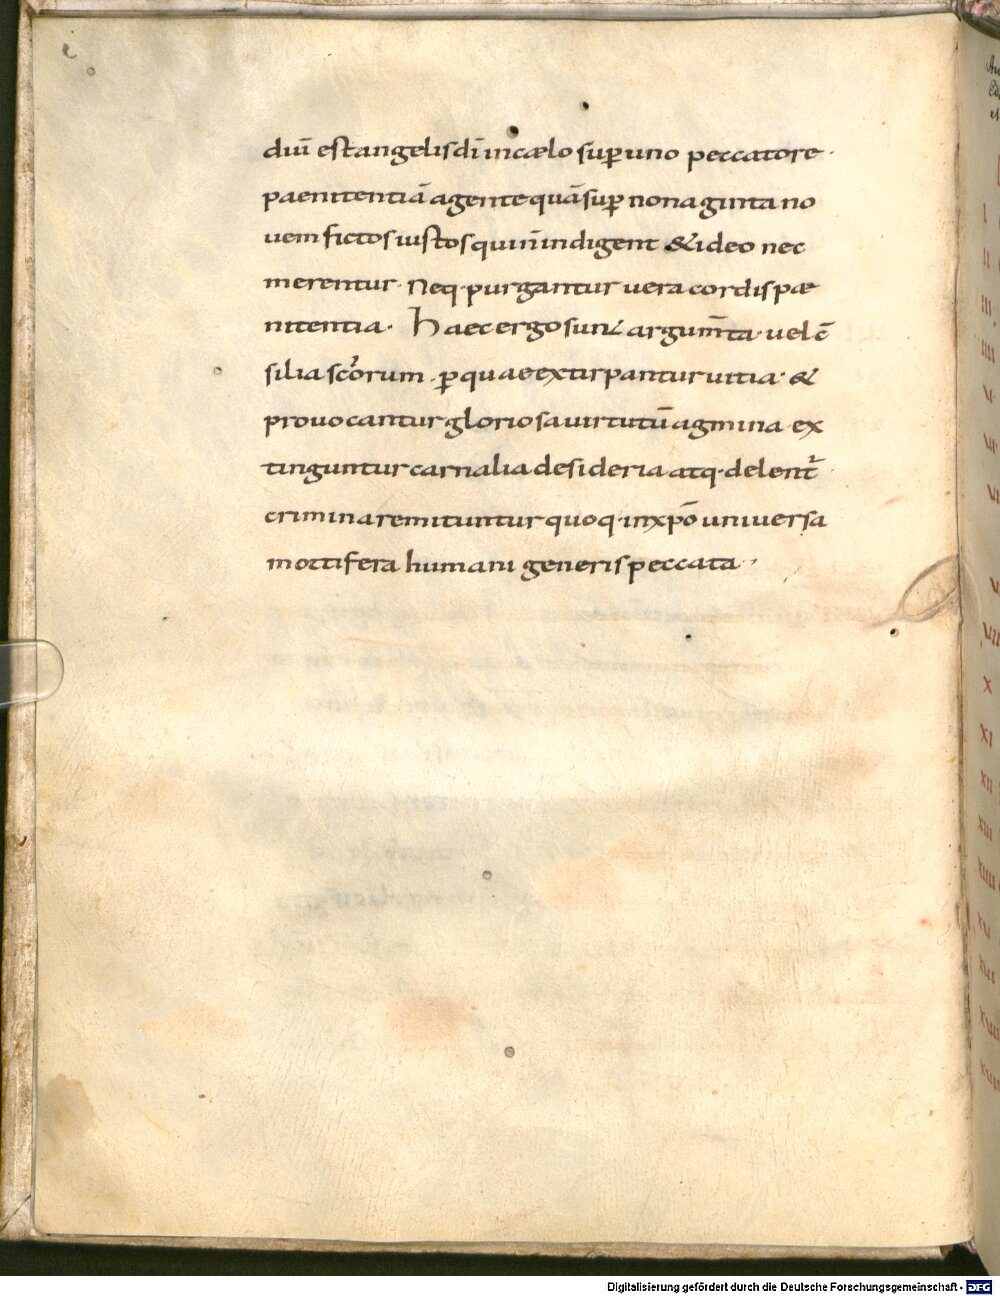 diū est angelis dī in cælo suꝑ uno peccatore ·
paenitentiā agente quā suꝑ nonaginta no
uem fictos iustos qui n̄ indigent & ideo nec
merentur · Neq· purgantur uera cordis pæ
nitentia · Haec ergo sunt argum̄ta · uel c̄
silia scōrum · ꝑ quae extirpantur uitia · &
prouocantur gloriosa uirtutū agmina · ex
tinguntur carnalia desideria atq· delent̄
crimina remituntur quoq· in xp̄o uniuersa
mortifera humani generis peccata ·
I
II
III
IIII
V
VI
X
XI
XII
XIII
XIIII
Digitalisierung gefördert durch die Deutsche Forschungsgemeinschaft - DFG